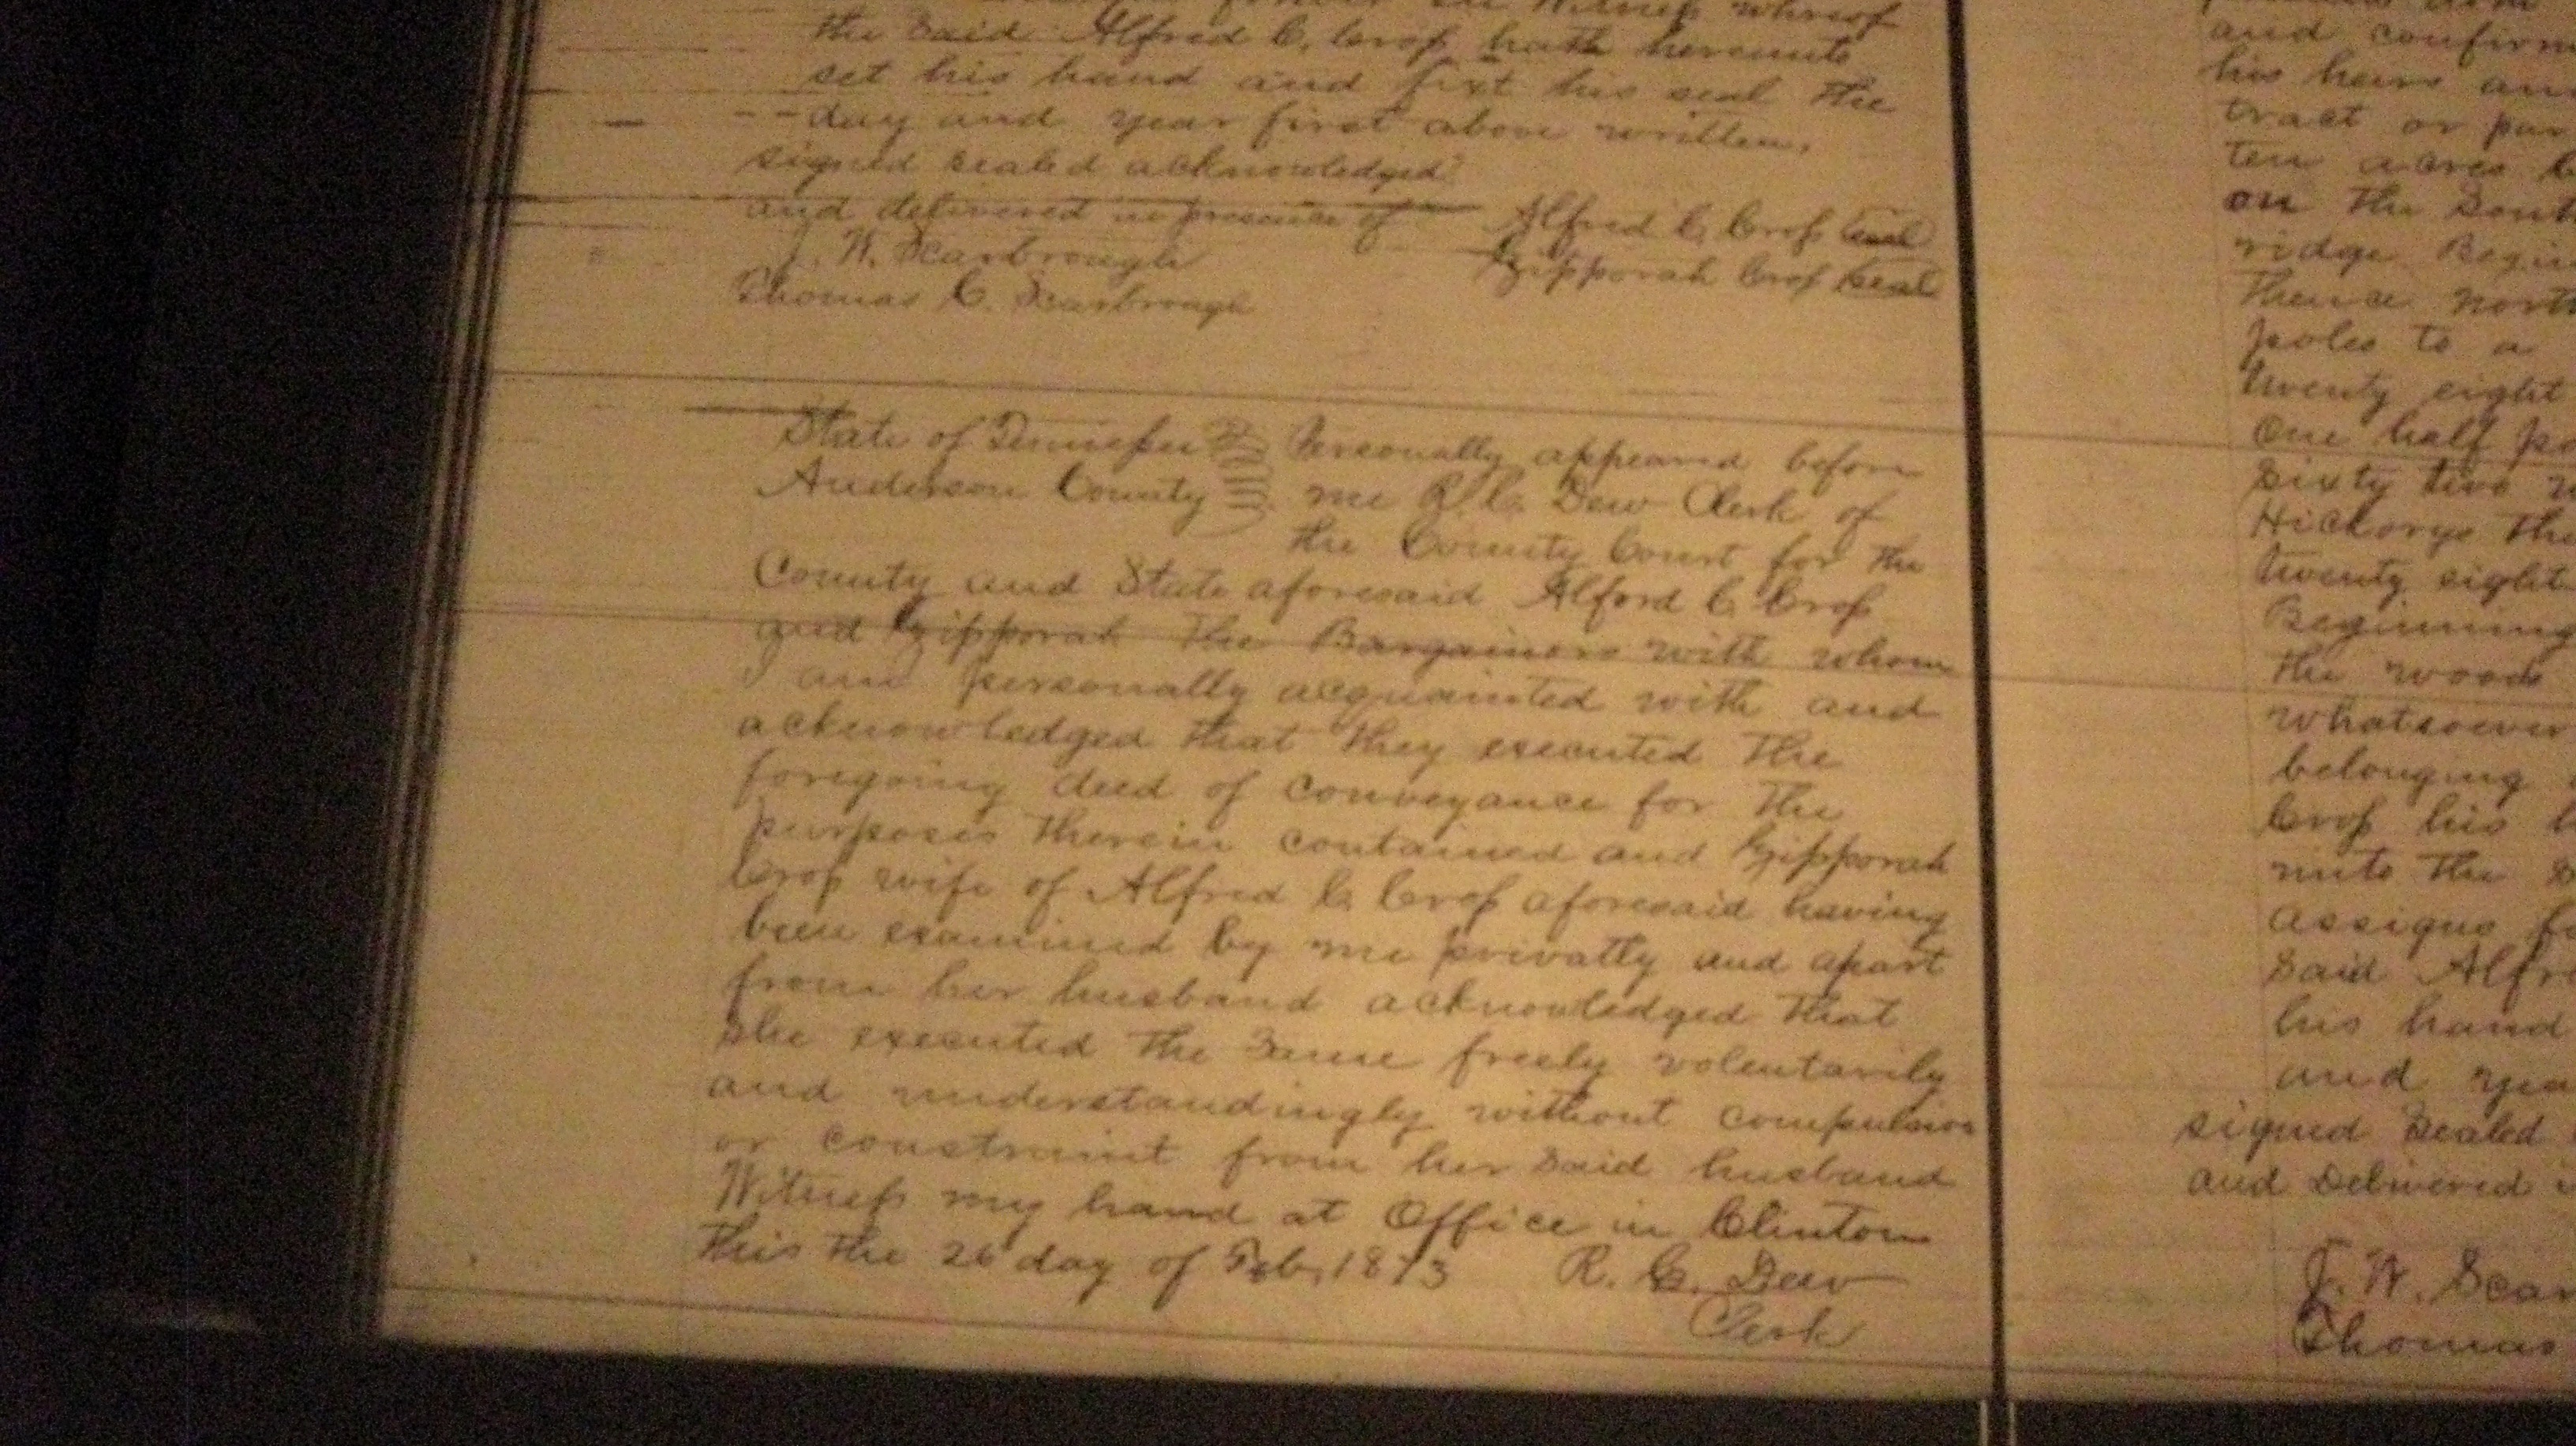 In Witness whereof
the said Alfred C. Crop hath hereunto
set his hand and fixt his seal the
day and year first above written.
signed sealed acknowledged
and delivered in presence of
Alfred C. Crop Seal
J. W. Scarbrough
Gipporah Crop Seal
Thomas C. Scarbrough
State of Tennessee Personally appeared before
Anderson County me R. C. Dew Clerk of
the County Court for the
County and State aforesaid Alford C. Crop
and Gipporah the Bargainers with whom
I am personally acquainted with and
acknowledged that they executed the
foregoing deed of conveyance for the
purposes therein contained and Gipporah
Crop wife of Alfred C. Crop aforesaid having
been examined by me privatly and apart
from her husband acknowledged that
she executed the same freely volentarily
and understandingly without compulsion
or constraint from her said husband
Witness my hand at Office in Clinton
this the 26 day of Feb. 1873 R. C. Dew
Clerk
and confirm
his heirs and
tract or par
ten acres
on the Sout
ridge Begin
thence north
poles to a
twenty eight
One half po
sixty two
Hickorys the
twenty eight
Beginning
the woods
whatsoever
belonging
Crop his
unto the
assigns
said Alfr
his hand
and year
signed Sealed
and Delivered
J. W. Scar
Thomas